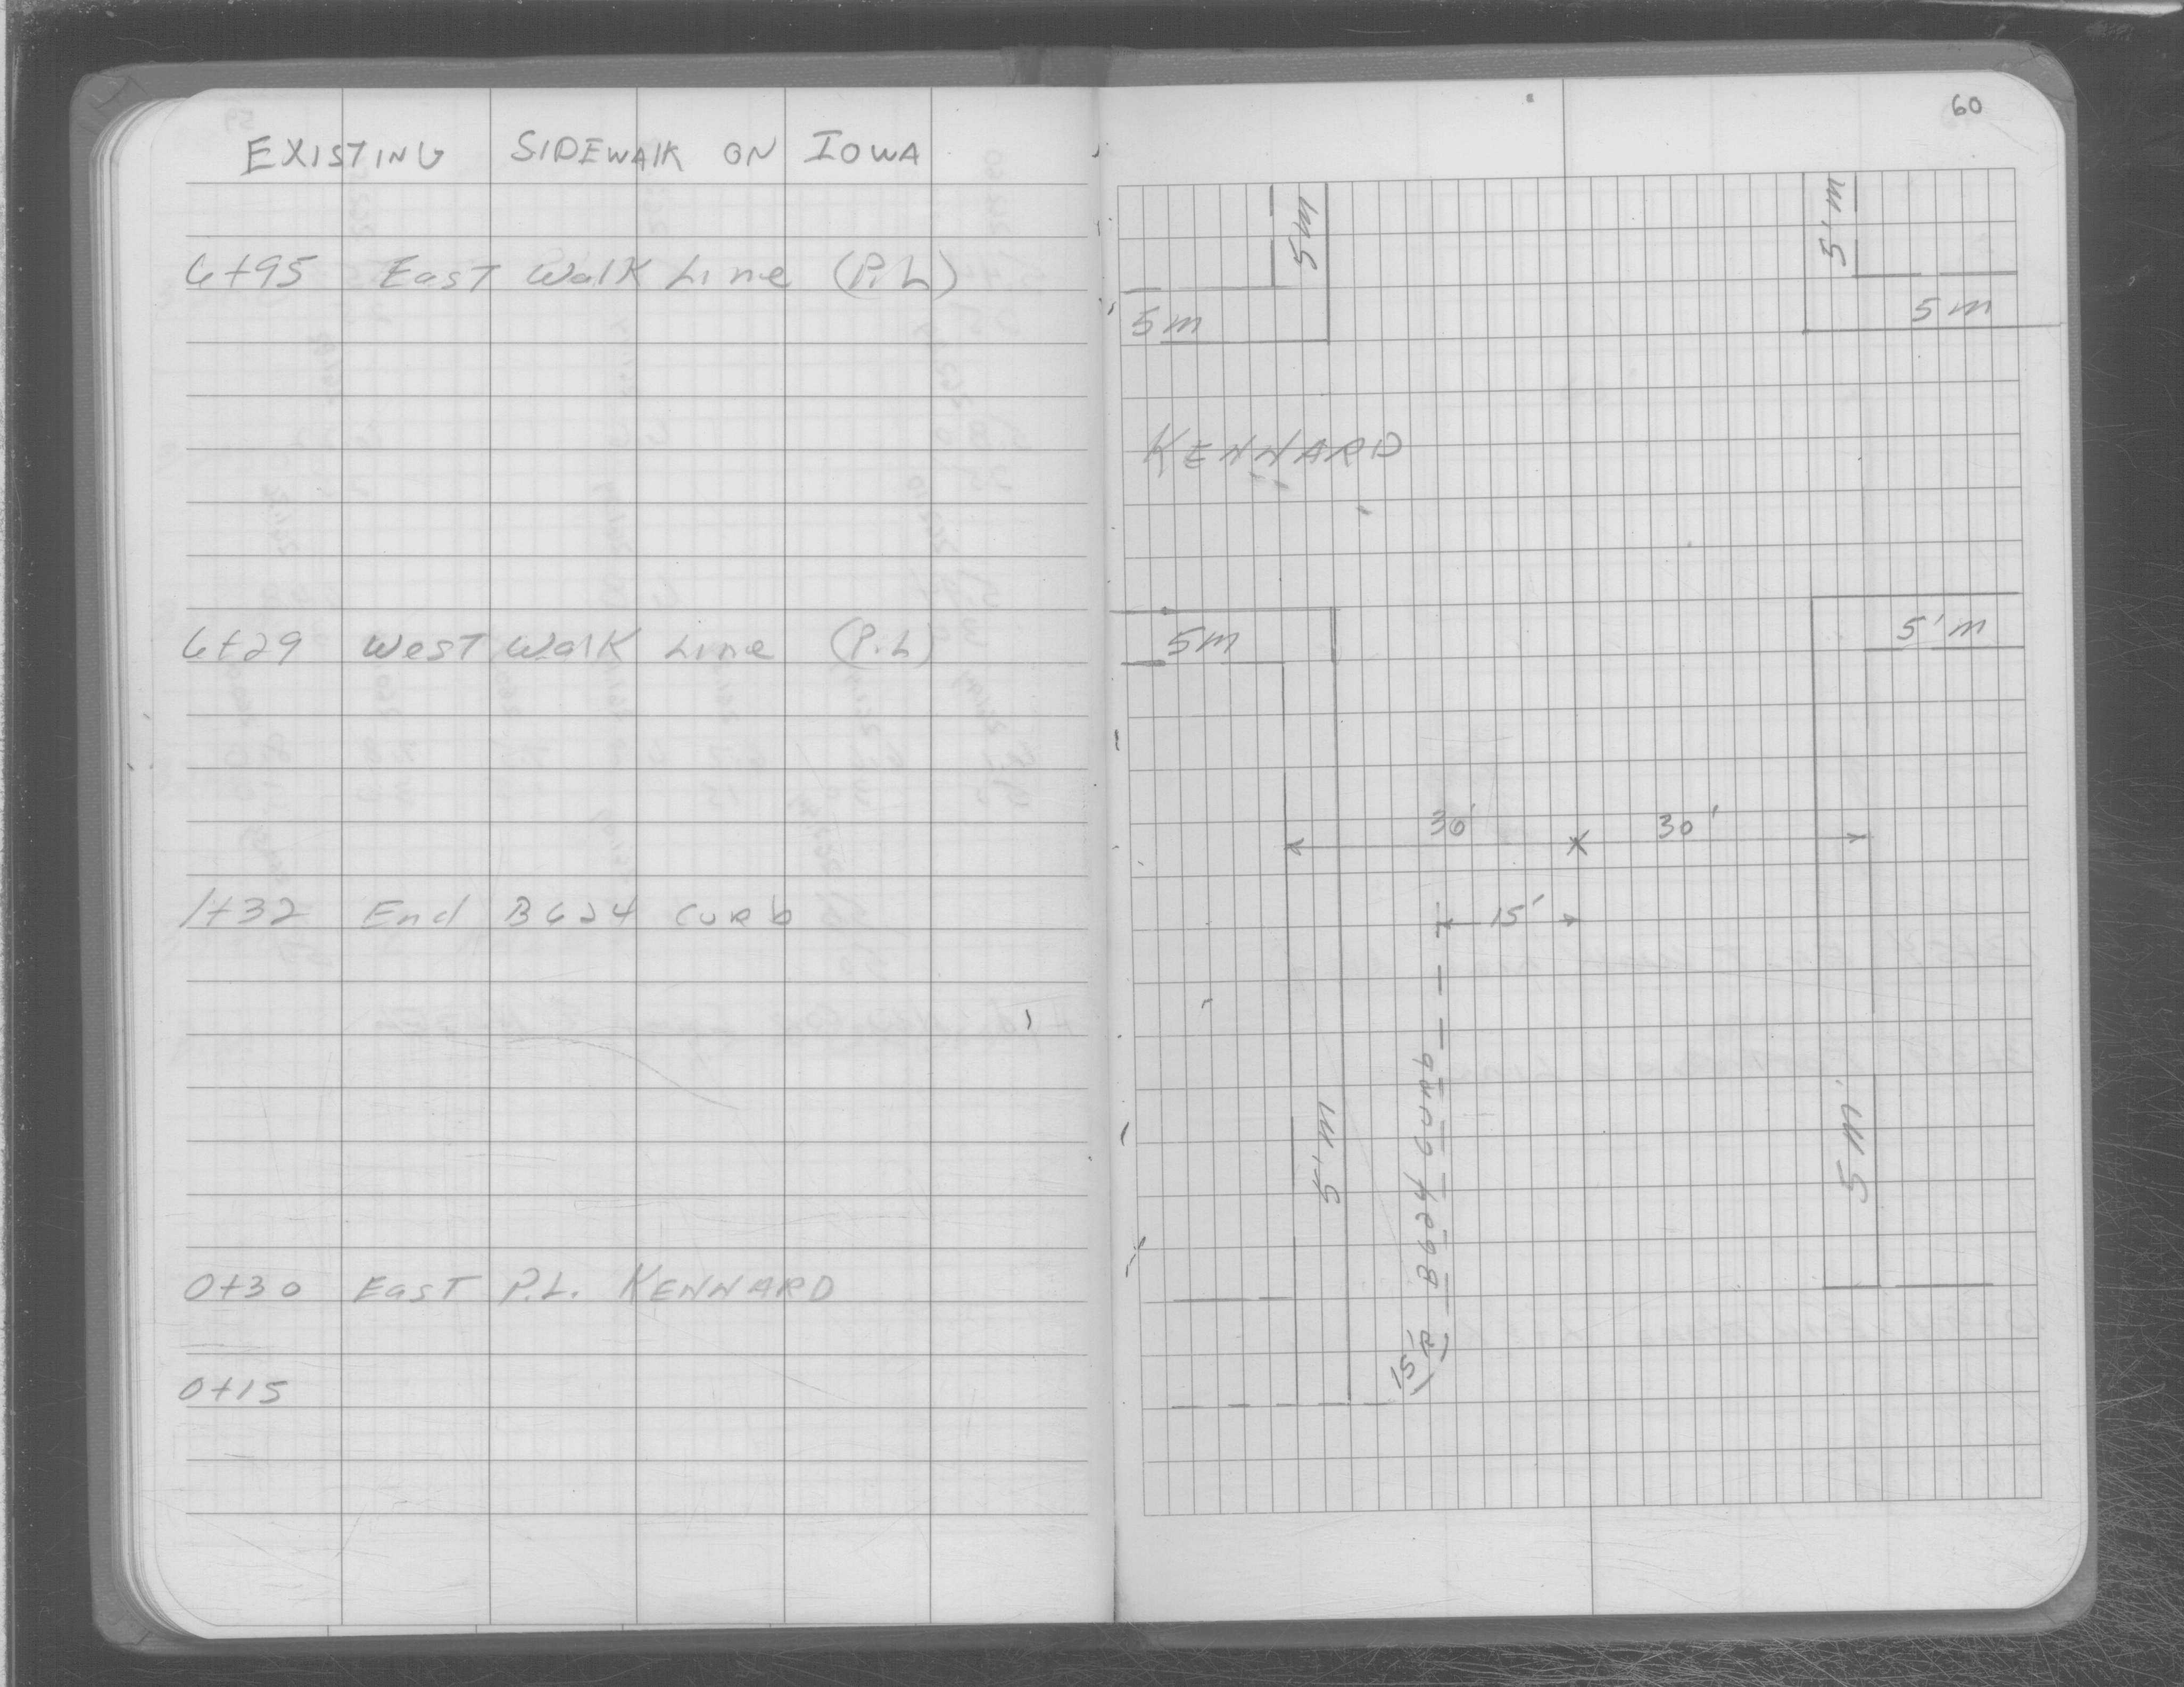 EXISTING SIDEWALK ON IOWA
6+95 East Walk Line (P.L)
6+29 West Walk Line (P.L)
1+32 End B624 Curb
0+30 East P.L. KENNARD
0+15
60
5M
5'M
5M
5M
KENNARD
5M
5'M
30'
30'
15'
B624 Curb
5'M
5'M
15'R